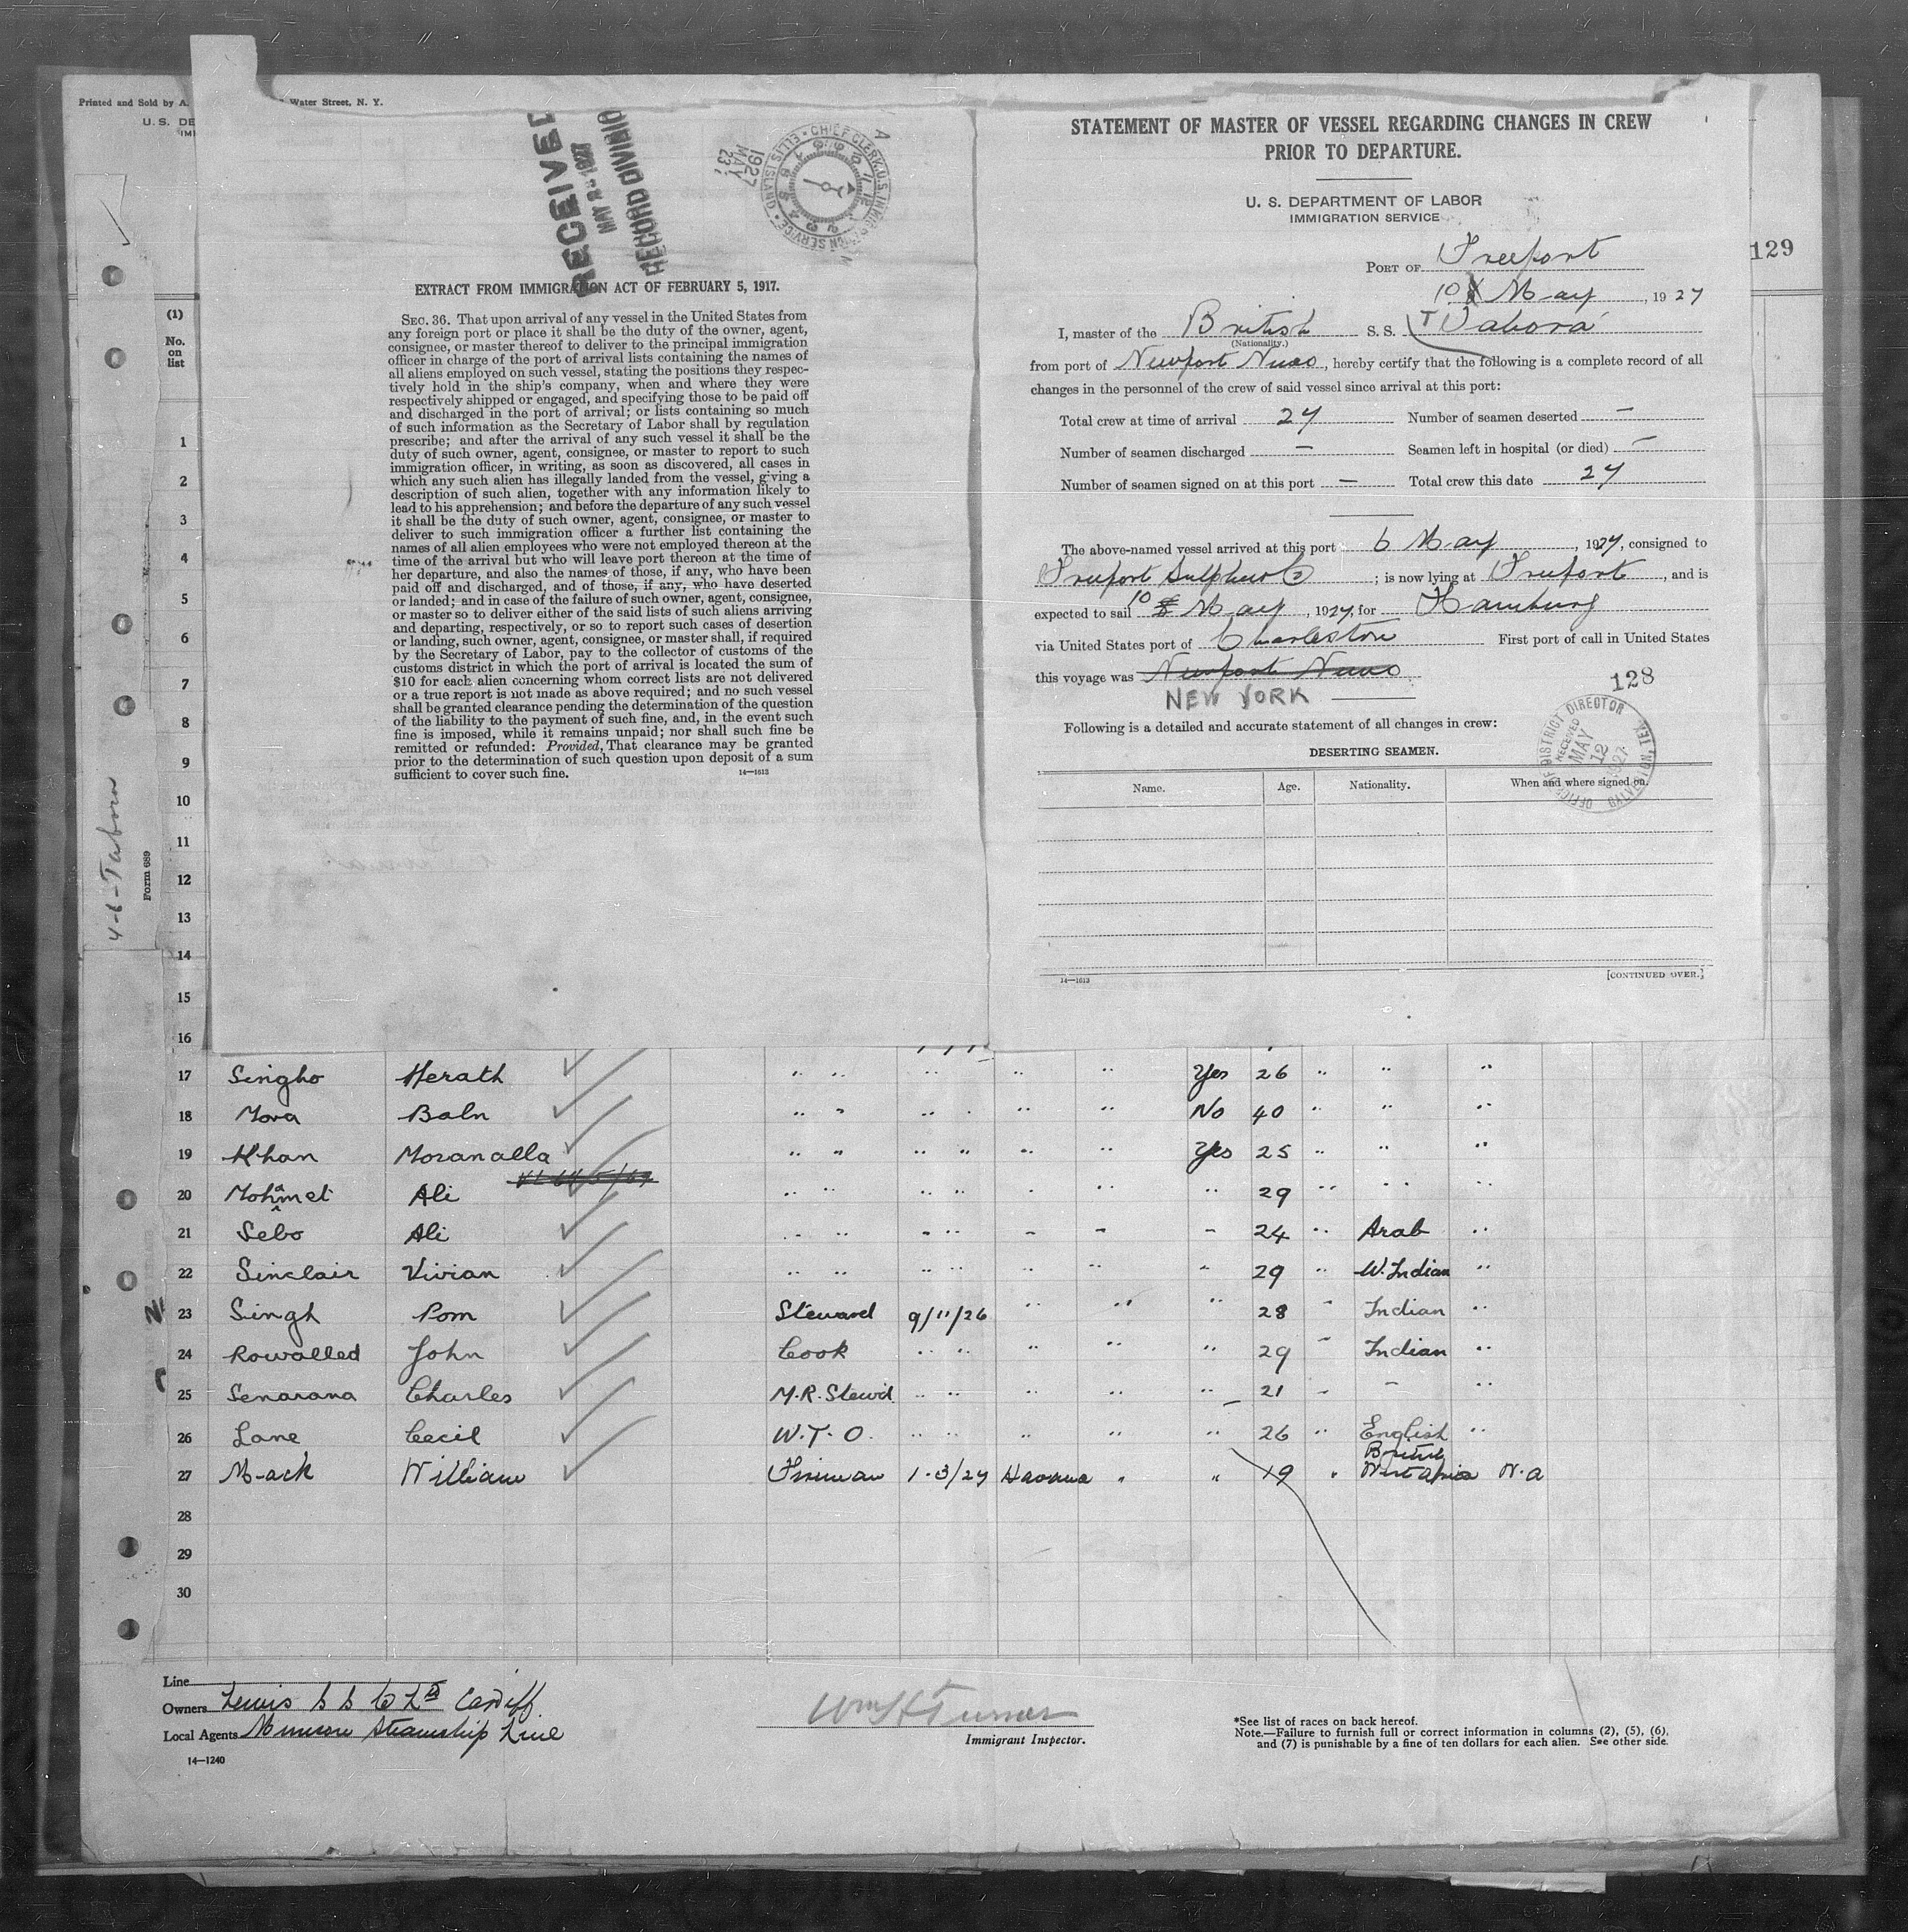 Printed and Sold by A.
Water Street, N. Y.
U. S. DE
IMI
RECEIVED
MAY 23 1927
RECORD DIVISIO
1927
MAY
23
CHIEF CLERK, U.S. IMMIGRATION SERVICE
ELLIS ISLAND
EXTRACT FROM IMMIGRATION ACT OF FEBRUARY 5, 1917.
SEC. 36. That upon arrival of any vessel in the United States from
any foreign port or place it shall be the duty of the owner, agent,
consignee, or master thereof to deliver to the principal immigration
officer in charge of the port of arrival lists containing the names of
all aliens employed on such vessel, stating the positions they respec-
tively hold in the ship's company, when and where they were
respectively shipped or engaged, and specifying those to be paid off
and discharged in the port of arrival; or lists containing so much
of such information as the Secretary of Labor shall by regulation
prescribe; and after the arrival of any such vessel it shall be the
duty of such owner, agent, consignee, or master to report to such
immigration officer, in writing, as soon as discovered, all cases in
which any such alien has illegally landed from the vessel, giving a
description of such alien, together with any information likely to
lead to his apprehension; and before the departure of any such vessel
it shall be the duty of such owner, agent, consignee, or master to
deliver to such immigration officer a further list containing the
names of all alien employees who were not employed thereon at the
time of the arrival but who will leave port thereon at the time of
her departure, and also the names of those, if any, who have been
paid off and discharged, and of those, if any, who have deserted
or landed; and in case of the failure of such owner, agent, consignee,
or master so to deliver either of the said lists of such aliens arriving
and departing, respectively, or so to report such cases of desertion
or landing, such owner, agent, consignee, or master shall, if required
by the Secretary of Labor, pay to the collector of customs of the
customs district in which the port of arrival is located the sum of
$10 for each alien concerning whom correct lists are not delivered
or a true report is not made as above required; and no such vessel
shall be granted clearance pending the determination of the question
of the liability to the payment of such fine, and, in the event such
fine is imposed, while it remains unpaid; nor shall such fine be
remitted or refunded: Provided, That clearance may be granted
prior to the determination of such question upon deposit of a sum
sufficient to cover such fine.
14—1613
STATEMENT OF MASTER OF VESSEL REGARDING CHANGES IN CREW
PRIOR TO DEPARTURE.
U. S. DEPARTMENT OF LABOR
IMMIGRATION SERVICE
PORT OF Freeport
10 May, 1927
129
I, master of the British S. S. Tabora
(Nationality.)
from port of Newport News, hereby certify that the following is a complete record of all
changes in the personnel of the crew of said vessel since arrival at this port:
Total crew at time of arrival 27 Number of seamen deserted —
Number of seamen discharged — Seamen left in hospital (or died) —
Number of seamen signed on at this port — Total crew this date 27
The above-named vessel arrived at this port 6 May, 1927, consigned to
Freeport Sulphur Co; is now lying at Freeport, and is
expected to sail 10 May, 1927, for Hamburg
via United States port of Charleston First port of call in United States
this voyage was Newport News
NEW YORK
128
Following is a detailed and accurate statement of all changes in crew:
OFFICE OF DISTRICT DIRECTOR
RECEIVED
MAY 12 1927
GALVESTON, TEX.
DESERTING SEAMEN.
Name. Age. Nationality. When and where signed on.
14—1613
[CONTINUED OVER.]
4-6-Tabora
Form 689
(1)
No.
on
list
1
2
3
4
5
6
7
8
9
10
11
12
13
14
15
16
17 Singho Herath " " " " " Yes 26 " " "
18 Mora Baln " " " " " " No 40 " " "
19 Khan Moranalla " " " " " " Yes 25 " " "
20 Mohamet Ali " " " " " " " 29 " " "
21 Sebo Ali " " " " " " " 24 " Arab "
22 Sinclair Vivian " " " " " " " 29 " W. Indian "
23 Singh Pom Steward 9/11/26 " " " 28 " Indian "
24 Rowalled John Cook " " " " " 29 " Indian "
25 Senarana Charles M.R. Stewd " " " " " 21 " " "
26 Lane Cecil W.T.O. " " " " " 26 " English "
27 Mack William Fireman 1-3/27 Havana " " 19 " British West Africa N.a
28
29
30
Line
Owners Lewis S S Co Ltd Cardiff
Local Agents Munson Steamship Line
14—1240
Wm H Turner
Immigrant Inspector.
*See list of races on back hereof.
Note.—Failure to furnish full or correct information in columns (2), (5), (6),
and (7) is punishable by a fine of ten dollars for each alien. See other side.